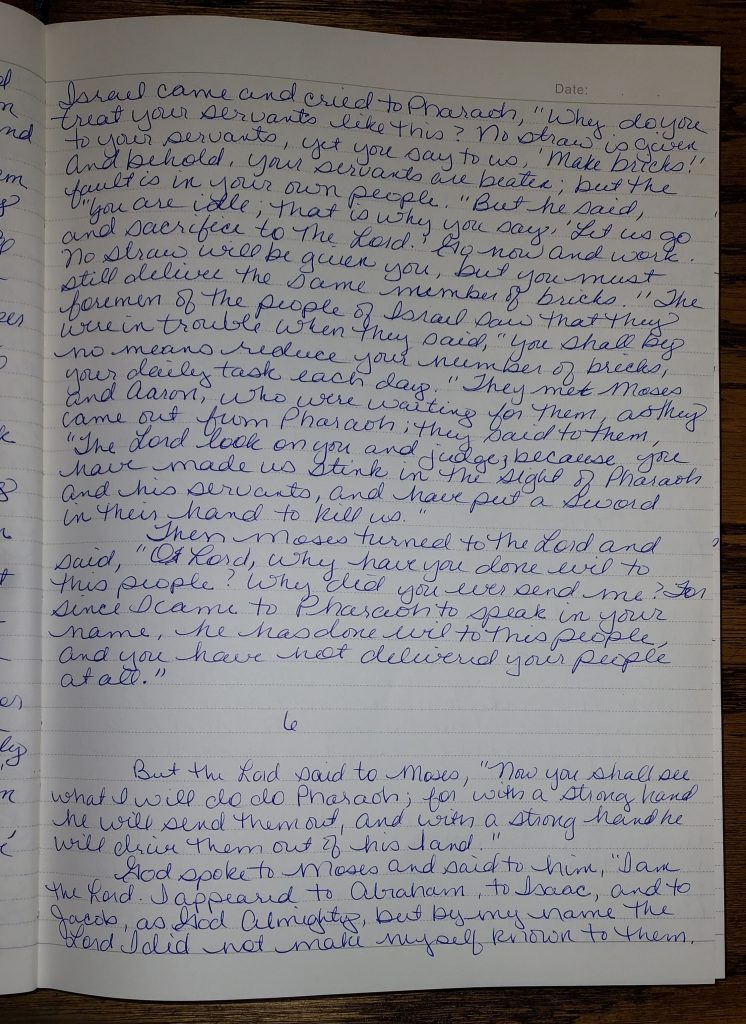 Date:
Israel came and cried to Pharaoh, "Why do you
treat your servants like this? No straw is given
to your servants, yet you say to us, 'Make bricks!'
And behold, your servants are beaten; but the
fault is in your own people. "But he said,
"You are idle; that is why you say, 'Let us go
and sacrifice to the Lord.' Go now and work.
No straw will be given you, but you must
still deliver the same number of bricks." The
foremen of the people of Israel saw that they
were in trouble when they said, "you shall by
no means reduce your number of bricks,
your daily task each day." They met Moses
and Aaron, who were waiting for them, as they
came out from Pharaoh; they said to them,
"The Lord look on you and judge, because you
have made us stink in the sight of Pharaoh
and his servants, and have put a sword
in their hand to kill us."
Then Moses turned to the Lord and
said, "O Lord, why have you done evil to
this people? Why did you ever send me? For
since I came to Pharaoh to speak in your
name, he has done evil to this people,
and you have not delivered your people
at all."
6
But the Lord said to Moses, "Now you shall see
what I will do do Pharaoh; for with a strong hand
he will send them out, and with a strong hand he
will drive them out of his land."
God spoke to Moses and said to him, "I am
the Lord. I appeared to Abraham, to Isaac, and to
Jacob, as God Almighty, but by my name the
Lord I did not make myself known to them.